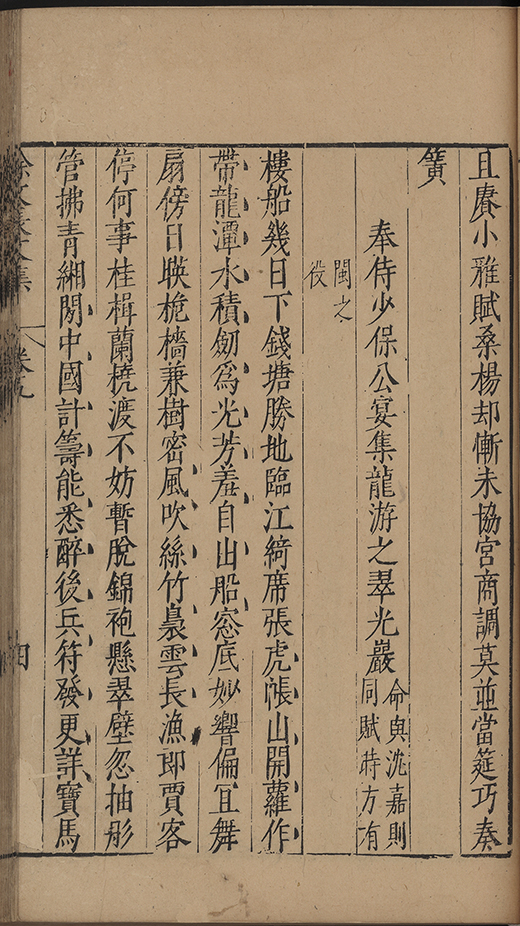 且賡小雅賦桑楊却慚未協宮商調莫並當筵巧奏
簧
奉侍少保公宴集龍游之翠光巖命與沈嘉則同賦時方有
閩之役
樓船幾日下錢塘勝地臨江綺席張虎帳山開蘿作
帶龍潭水積劒為光芳羞自出船窓底妙響偏宜舞
扇傍日暎桅檣兼樹密風吹絲竹裊雲長漁郎賈客
停何事桂楫蘭橈渡不妨暫脫錦袍懸翠壁忽抽彤
管拂青緗閑中國計籌能悉醉後兵符發更詳寶馬
徐文長文集 卷九 四